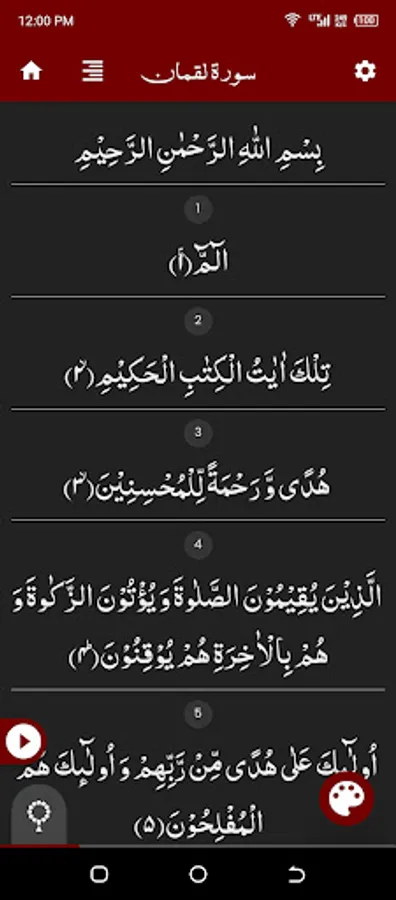 12:00 PM
سورة لقمان
بِسْمِ اللهِ الرَّحْمٰنِ الرَّحِيْمِ
1
الٓمّٓ ﴿۱﴾
2
تِلْكَ اٰيٰتُ الْكِتٰبِ الْحَكِيْمِ ﴿۲﴾
3
هُدًى وَّرَحْمَةً لِّلْمُحْسِنِيْنَ ﴿۳﴾
4
الَّذِيْنَ يُقِيْمُوْنَ الصَّلٰوةَ وَيُؤْتُوْنَ الزَّكٰوةَ وَ
هُمْ بِالْاٰخِرَةِ هُمْ يُوْقِنُوْنَ ﴿۴﴾
5
اُولٰٓئِكَ عَلٰى هُدًى مِّنْ رَّبِّهِمْ وَ اُولٰٓئِكَ هُمُ
الْمُفْلِحُوْنَ ﴿۵﴾